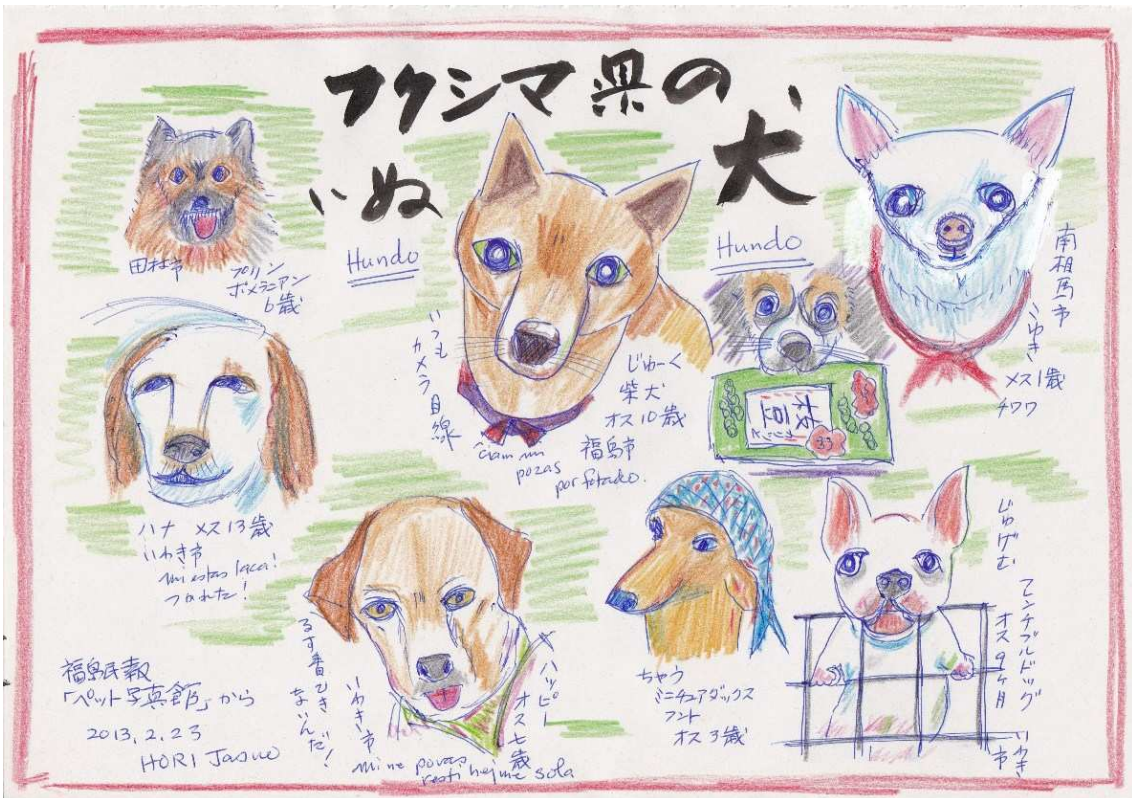 フクシマ県の
いぬ 犬
Hundo
Hundo
田村市
プリン
ポメラニアン
6歳
いつも
カメラ目線
じゅーく
柴犬
オス10歳
福島市
pozas
por fotado.
南相馬市
こゆき
メス1歳
チワワ
枝豆
ハナ メス13歳
いわき市
Mi estas laca!
つかれた!
ハッピー
オス七歳
いわき市
るす番できないんだ!
mi ne povas
resti hejme sola
ちゃう
ミニチュアダックス
フント
オス3歳
じゅげむ
フレンチブルドッグ
オス9ヶ月
いわき市
福島民報
「ペット写真館」から
2013.2.23
HORI Jasuo